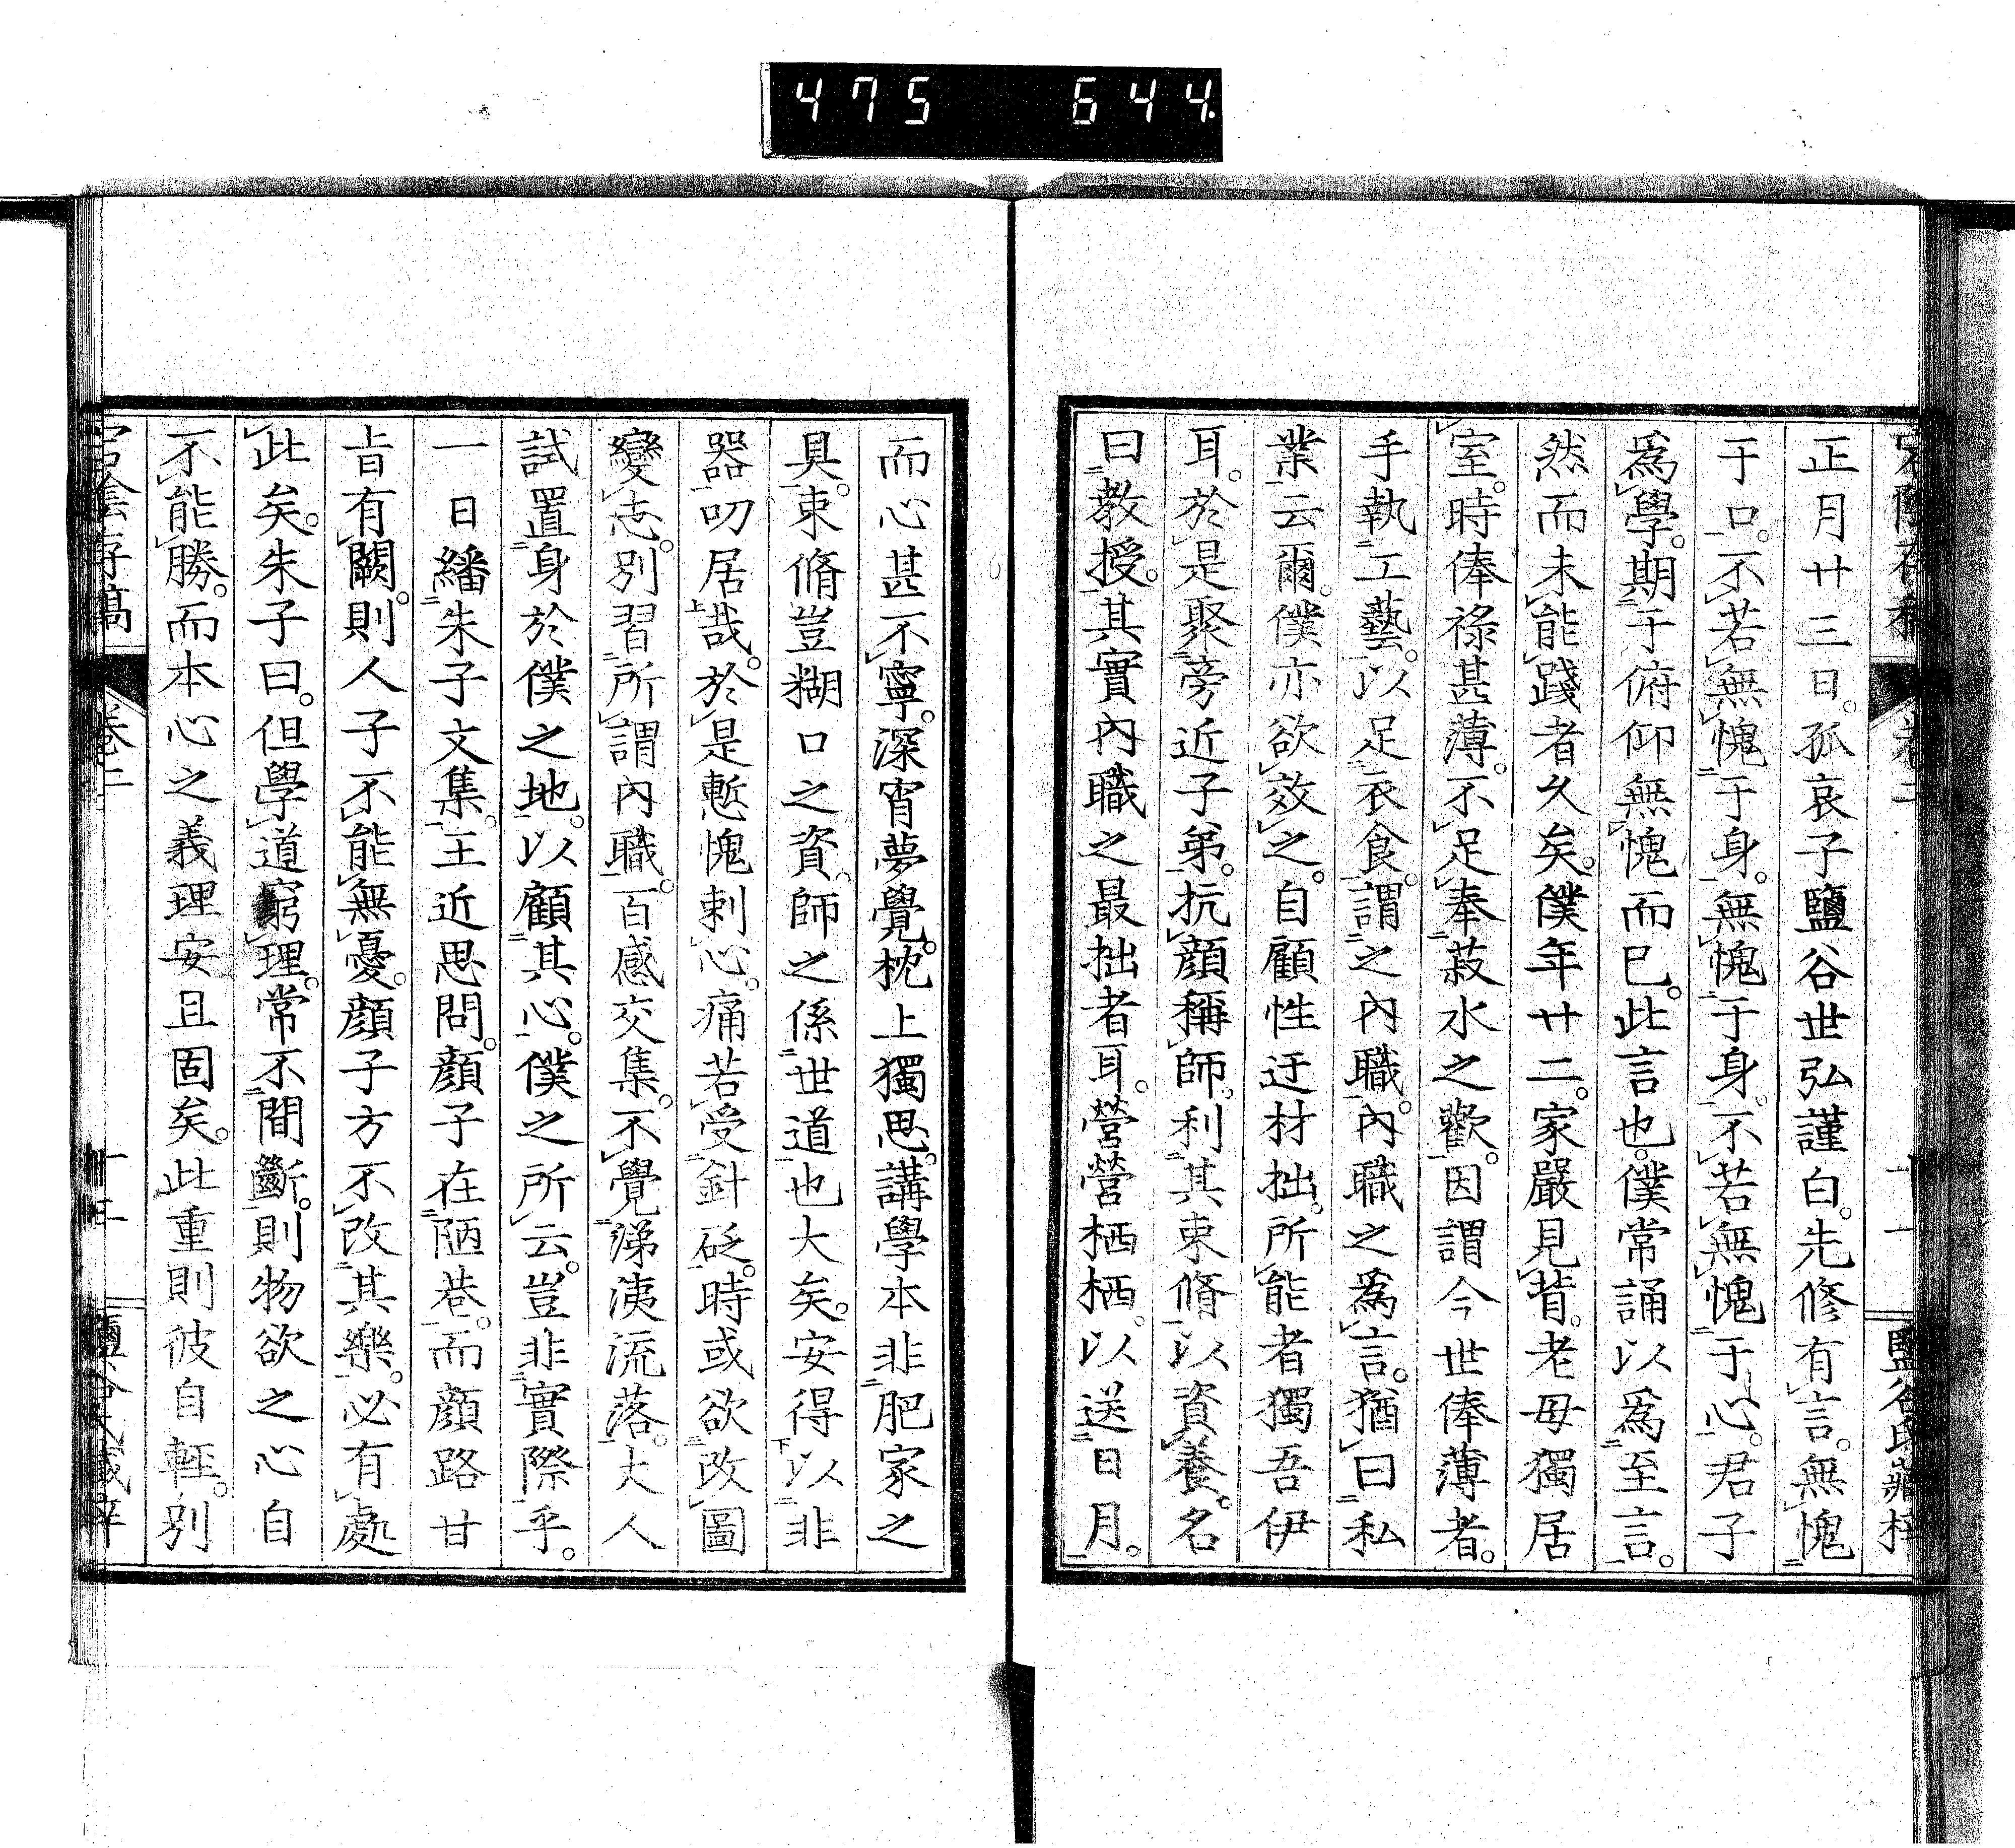 475 644.
正月廿三日。孤哀子鹽谷世弘謹白。先修有言。無愧
于口。不若無愧于身。無愧于身。不若無愧于心。君子
為學。期于俯仰無愧而已。此言也。僕常誦以為至言。
然而未能踐者久矣。僕年廿二。家嚴見背。老母獨居
室。時俸祿甚薄。不足奉菽水之歡。因謂今世俸薄者。
手執工藝。以足衣食。謂之內職。內職之為言。猶曰私
業云爾。僕亦欲效之。自顧性迂材拙。所能者獨吾伊
耳。於是聚旁近子弟。抗顏稱師。利其束脩。以資養。名
曰教授。其實內職之最拙者耳。營營栖栖。以送日月。
而心甚不寧。深宵夢覺。枕上獨思。講學本非肥家之
具。束脩豈糊口之資。師之係世道也大矣。安得以非
器叨居哉。於是慙愧刺心。痛若受針砭。時或欲改圖
變志。別習所謂內職。百感交集。不覺涕洟流落。大人
試置身於僕之地。以顧其心。僕之所云。豈非實際乎。
一日繙朱子文集。王近思問。顏子在陋巷。而顏路甘
旨有闕。則人子不能無憂。顏子方不改其樂。必有處
此矣。朱子曰。但學道窮理。常不間斷。則物欲之心自
不能勝。而本心之義理安且固矣。此重則彼自輕。別
宕陰存稿 卷二 十三 鹽谷氏藏梓